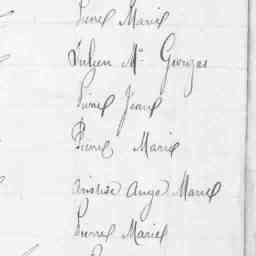 Pierre Marie
Julien Me Georges
Pierre Jean
Pierre Marie
Aristide Ange Marie
Pierre Marie